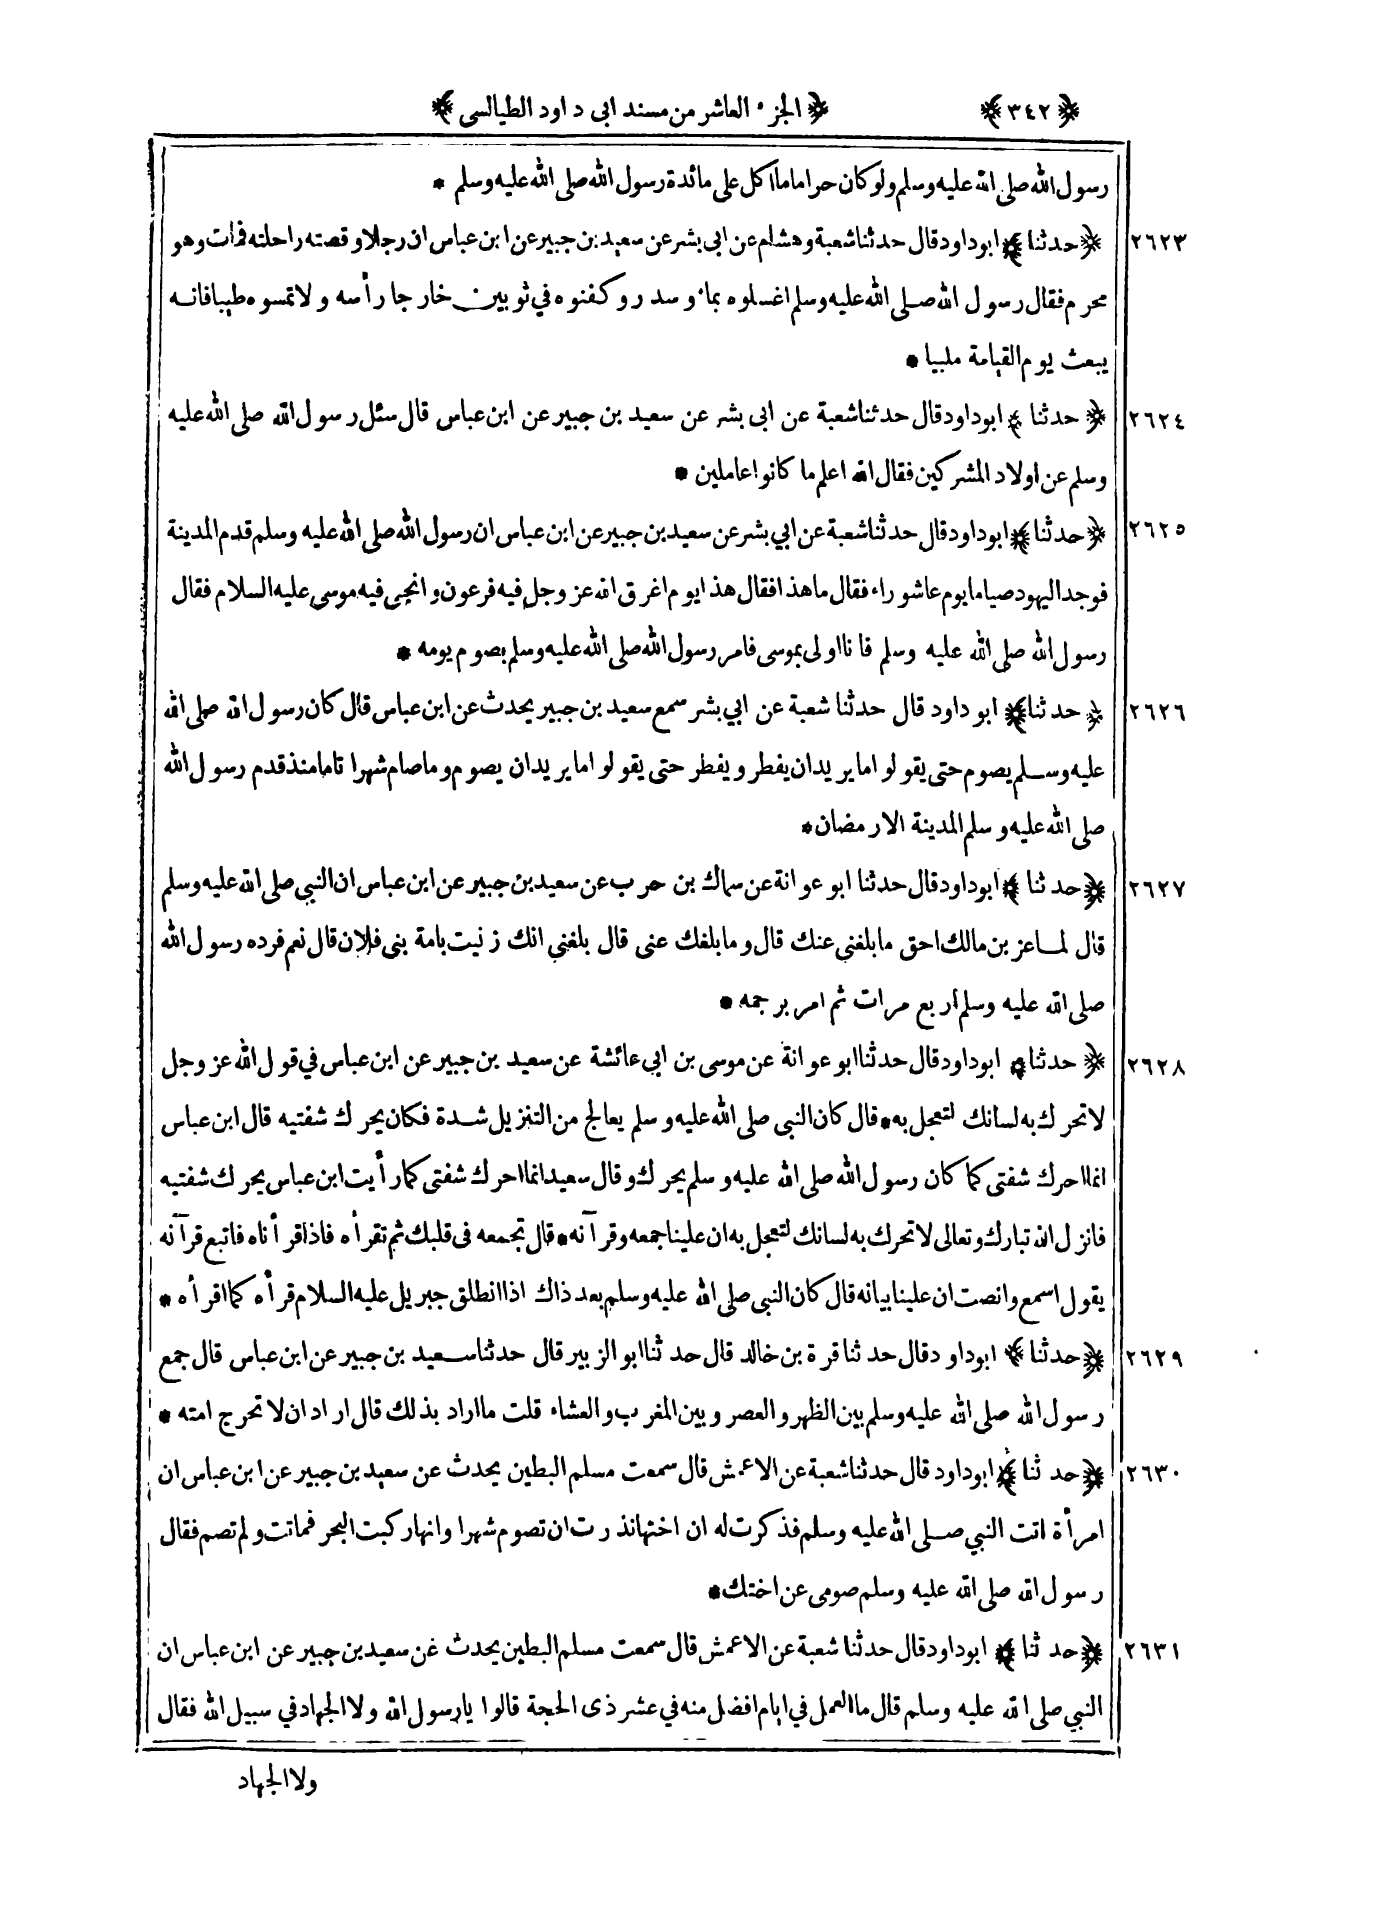 ﴿٣٤٢﴾ ﴿الجزء العاشر من مسند ابى داود الطيالسى﴾
رسول الله صلى الله عليه وسلم ولو كان حراما ما اكل على مائدة رسول الله صلى الله عليه وسلم *
٢٦٢٣ ﴿حدثنا﴾ ابو داود قال حدثنا شعبة وهشام عن ابى بشر عن سعيد بن جبير عن ابن عباس ان رجلا وقصته راحلته فمات وهو
محرم فقال رسول الله صلى الله عليه وسلم اغسلوه بماء وسدر وكفنوه في ثوبين خارجا رأسه ولا تمسوه طيبا فانه
يبعث يوم القيامة ملبيا *
٢٦٢٤ ﴿حدثنا﴾ ابو داود قال حدثنا شعبة عن ابى بشر عن سعيد بن جبير عن ابن عباس قال سئل رسول الله صلى الله عليه
وسلم عن اولاد المشركين فقال الله اعلم ما كانوا عاملين *
٢٦٢٥ ﴿حدثنا﴾ ابو داود قال حدثنا شعبة عن ابي بشر عن سعيد بن جبير عن ابن عباس ان رسول الله صلى الله عليه وسلم قدم المدينة
فوجد اليهود صياما يوم عاشوراء فقال ما هذا فقال هذا يوم اغرق الله عز وجل فيه فرعون وانجى فيه موسى عليه السلام فقال
رسول الله صلى الله عليه وسلم فانا اولى بموسى فامر رسول الله صلى الله عليه وسلم بصوم يومه *
٢٦٢٦ ﴿حدثنا﴾ ابو داود قال حدثنا شعبة عن ابي بشر سمع سعيد بن جبير يحدث عن ابن عباس قال كان رسول الله صلى الله
عليه وسلم يصوم حتى يقولوا ما يريد ان يفطر ويفطر حتى يقولوا ما يريد ان يصوم وما صام شهرا تاما منذ قدم رسول الله
صلى الله عليه وسلم المدينة الا رمضان *
٢٦٢٧ ﴿حدثنا﴾ ابو داود قال حدثنا ابو عوانة عن سماك بن حرب عن سعيد بن جبير عن ابن عباس ان النبي صلى الله عليه وسلم
قال لماعز بن مالك احق ما بلغني عنك قال وما بلغك عنى قال بلغني انك زنيت بامة بنى فلان قال نعم فرده رسول الله
صلى الله عليه وسلم اربع مرات ثم امر برجمه *
٢٦٢٨ ﴿حدثنا﴾ ابو داود قال حدثنا ابو عوانة عن موسى بن ابي عائشة عن سعيد بن جبير عن ابن عباس في قول الله عز وجل
لا تحرك به لسانك لتعجل به * قال كان النبي صلى الله عليه وسلم يعالج من التنزيل شدة فكان يحرك شفتيه قال ابن عباس
انما احرك شفتى كما كان رسول الله صلى الله عليه وسلم يحرك وقال سعيد انما احرك شفتى كما رأيت ابن عباس يحرك شفتيه
فانزل الله تبارك وتعالى لا تحرك به لسانك لتعجل به ان علينا جمعه وقرآنه * قال تجمعه فى قلبك ثم تقرأه فاذا قرأناه فاتبع قرآنه
يقول اسمع وانصت ان علينا بيانه قال كان النبي صلى الله عليه وسلم بعد ذاك اذا انطلق جبريل عليه السلام قرأه كما اقرأه *
٢٦٢٩ ﴿حدثنا﴾ ابو داود قال حدثنا قرة بن خالد قال حدثنا ابو الزبير قال حدثنا سعيد بن جبير عن ابن عباس قال جمع
رسول الله صلى الله عليه وسلم بين الظهر والعصر وبين المغرب والعشاء قلت ما اراد بذلك قال اراد ان لا تحرج امته *
٢٦٣٠ ﴿حدثنا﴾ ابو داود قال حدثنا شعبة عن الاعمش قال سمعت مسلم البطين يحدث عن سعيد بن جبير عن ابن عباس ان
امرأة اتت النبي صلى الله عليه وسلم فذكرت له ان اختها نذرت ان تصوم شهرا وانها ركبت البحر فماتت ولم تصم فقال
رسول الله صلى الله عليه وسلم صومى عن اختك *
٢٦٣١ ﴿حدثنا﴾ ابو داود قال حدثنا شعبة عن الاعمش قال سمعت مسلم البطين يحدث عن سعيد بن جبير عن ابن عباس ان
النبي صلى الله عليه وسلم قال ما العمل في ايام افضل منه في عشر ذى الحجة قالوا يا رسول الله ولا الجهاد في سبيل الله فقال
ولا الجهاد